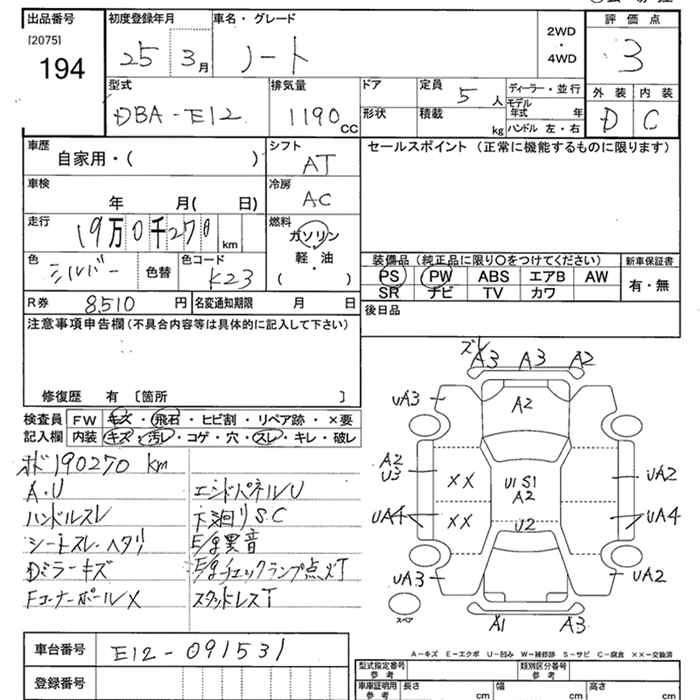 出品番号
[2075]
194
初度登録年月
25 3月
車名・グレード
ノート
2WD
・
4WD
評価点
3
型式
DBA-E12
排気量
1190cc
ドア
形状
定員
5人
積載
kg
ディーラー・並行
モデル年式 年
ハンドル 左・右
外装 内装
D C
車歴
自家用・( )
シフト
AT
セールスポイント (正常に機能するものに限ります)
車検
年 月( 日)
冷房
AC
走行
19万0千270km
燃料
ガソリン
・
軽油
・
( )
色
シルバー
色替
色コード
K23
装備品 (純正品に限り○をつけてください)
PS PW ABS エアB AW
SR ナビ TV カワ
新車保証書
有・無
R券 8510 円
名変通知期限 月 日
後日品
注意事項申告欄 (不具合内容等は具体的に記入して下さい)
修復歴 有 [箇所 ]
検査員
記入欄
FW キズ・飛石・ヒビ割・リペア跡・×要
内装 キズ・汚レ・コゲ・穴・スレ・キレ・破レ
190270 km
A・U
ハンドルスレ
シートスレ・ヘタリ
Dミラーキズ
Fコーナーポール×
エンドパネルU
下廻りS.C
E/g異音
E/gチェックランプ点灯
スタッドレスT
ズレ
A3 A3 A2
UA3
A2
A2
U3
××
U1 S1
A2
UA2
UA4
××
U2
UA4
UA3
UA2
スペア
A1 A3
A-キズ E-エクボ U-凹み W-補修跡 S-サビ C-腐食 ××-交換済
車台番号
E12-091531
登録番号
型式指定番号
参考
類別区分番号
参考
車庫証明用
参考
長さ cm
幅 cm
高さ cm